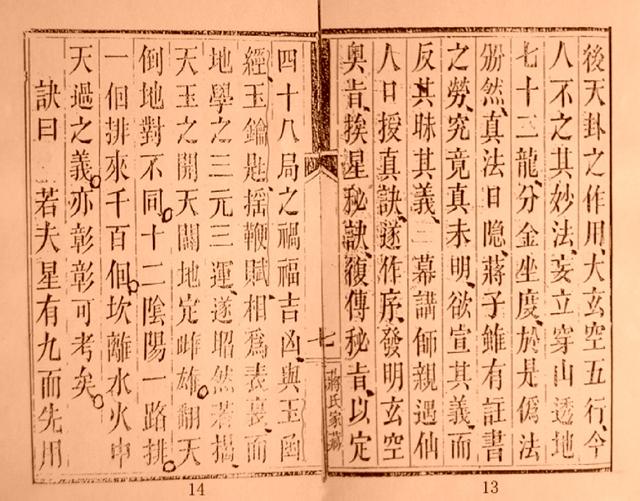 後天卦之作用、大玄空五行、今
人不之其妙法、妄立穿山透地
七十二龍、分金坐度、於是僞法
紛然、真法日隐、蔣子雖有註書
之勞、究竟真未明、欲宣其義、而
反其昧其義、二幕講師親遇仙
人口授真訣、遂作序、發明玄空
奥旨、挨星秘訣、復傳秘旨、以定
七
蔣氏家藏
四十八局之禍福吉凶、與玉函
經、玉鑰匙、揺鞭賦、相爲表裏、而
地學之三元三運、遂昭然若揭、
天玉之開天闢地定雌雄。翻天
倒地對不同。十二陰陽一路排。
一個排來千百個。坎離水火中
天過之義。亦彰彰可考矣。
訣曰 若夫星有九而先用
14
13